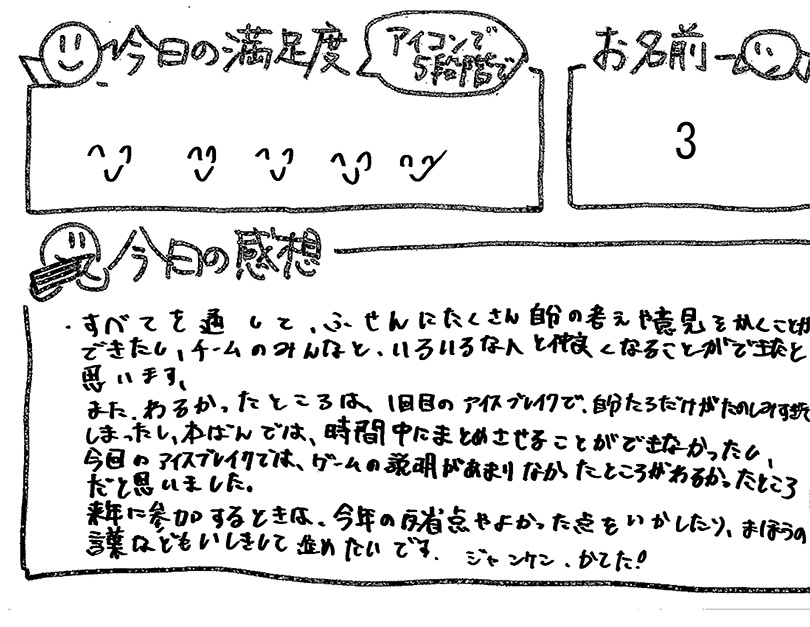 今日の満足度
アイコンで
5段階で
お名前
3
今日の感想
・すべてを通して、ふせんにたくさん自分の考えや意見をかくことが
できたし、チームのみんなと、いろいろな人と仲良くなることができたと
思います。
また、わるかったところは、1回目のアイスブレイクで、自分たちだけがたのしみすぎて
しまったし、本ばんでは、時間中にまとめさせることができなかったし、
今回のアイスブレイクでは、ゲームの説明があまりなかったところがわるかったところ
だと思いました。
来年に参加するときは、今年の反省点やよかった点をいかしたり、まほうの
言葉などもいしきして進めたいです。 ジャンケン、かてた!